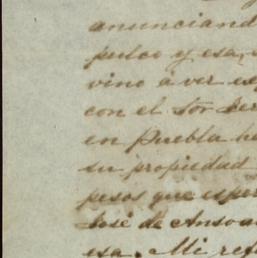 anunciand
pulco y esa,
vino á ver es
con el Sor Ser
en Puebla he
su propiedad
pesos que esper
José de Anso
esa. Mi ref